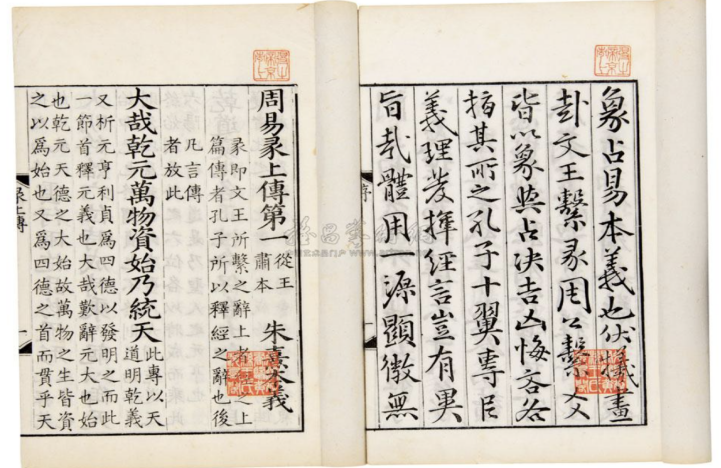 象占易本義也伏犧畫
卦文王繫彖周公繫爻
皆以象與占决吉凶悔吝各
指其所之孔子十翼專用
義理發揮經言豈有異
旨哉體用一源顯微無
序
周易彖上傳第一 從王
肅本 朱熹本義
彖即文王所繫之辭上者經之上
篇傳者孔子所以釋經之辭也後
凡言傳
者放此
大哉乾元萬物資始乃統天 此專以天
道明乾義
又析元亨利貞爲四德以發明之而此
一節首釋元義也大哉歎辭元大也始
也乾元天德之大始故萬物之生皆資
之以爲始也又爲四德之首而貫乎天
彖上傳
一